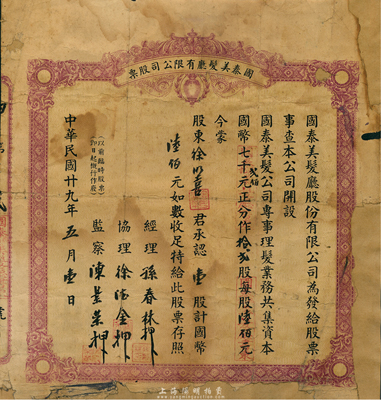 國泰美髮廳有限公司股票
國泰美髮廳股份有限公司為發給股票
事查本公司開設
國泰美髮公司專事理髮業務共集資本
國幣七千貳佰元正分作拾貳股每股陸佰元
今蒙
股東徐明喜君承認壹股計國幣
陸佰元如數收足特給此股票存照
經理 孫春林押
協理 徐德金押
監察 陳景榮押
(以前臨時股票即日起概行作廢)
中華民國廿九年五月壹日
上海陽明拍賣